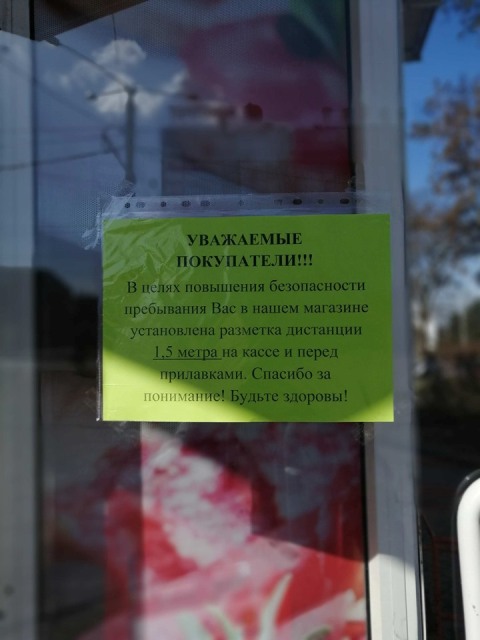 УВАЖАЕМЫЕ
ПОКУПАТЕЛИ!!!
В целях повышения безопасности
пребывания Вас в нашем магазине
установлена разметка дистанции
1,5 метра на кассе и перед
прилавками. Спасибо за
понимание! Будьте здоровы!